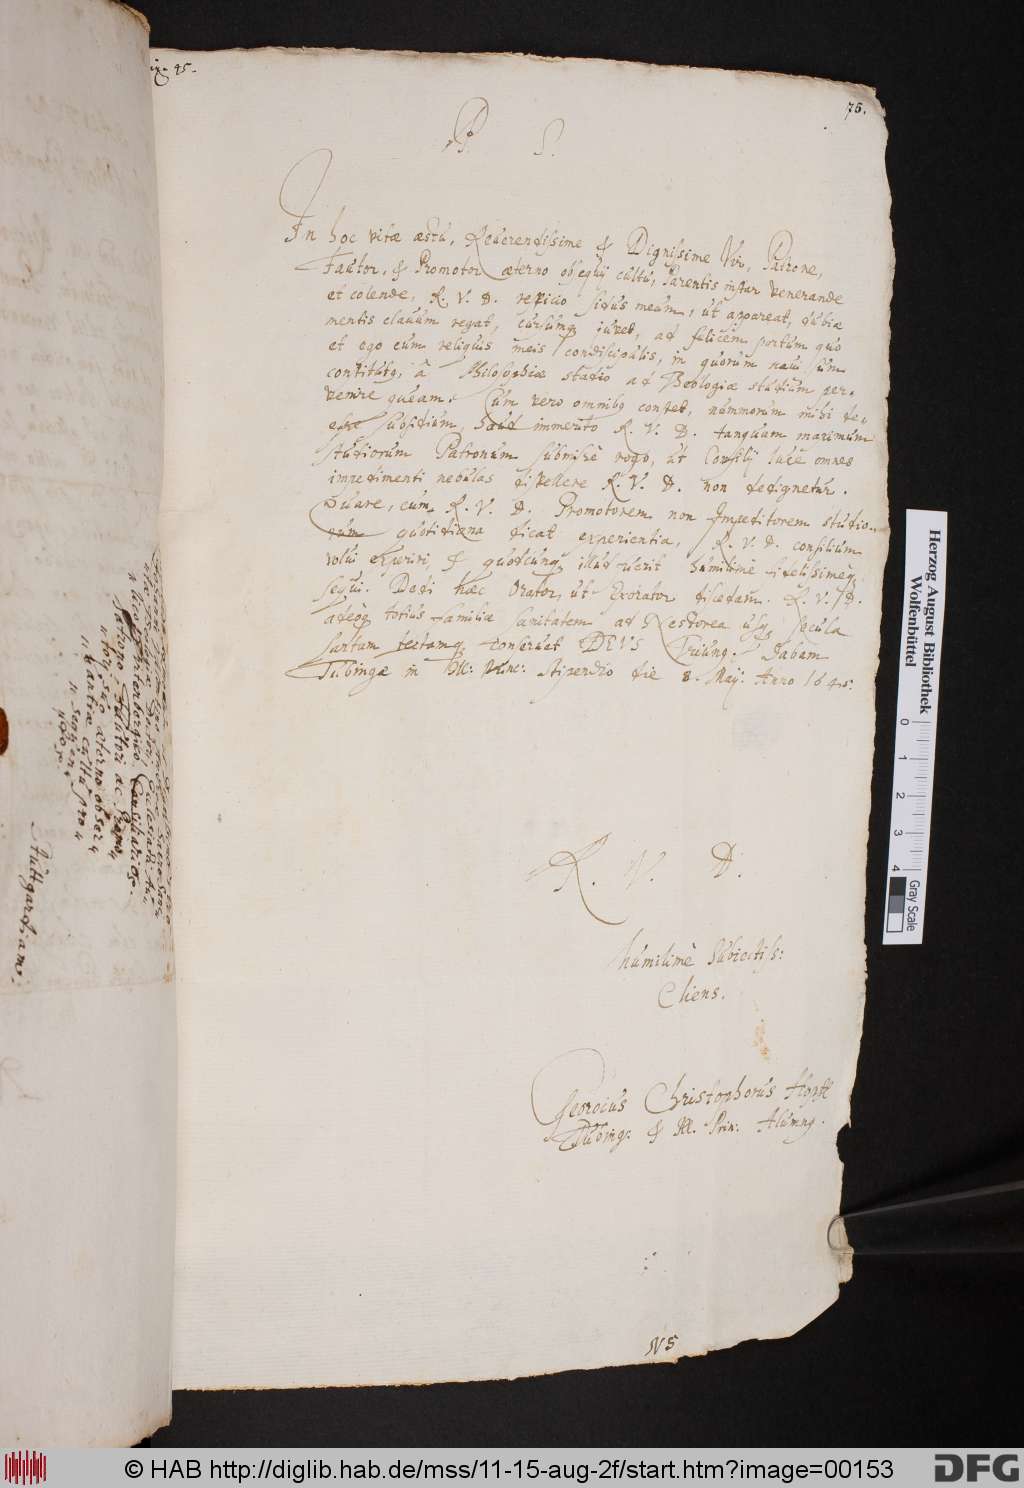 75.
P. S.
In hoc vitæ æstu, Reverendissime & Dignissime Vir, Patrone,
Fautor, & Promotor æterno obsequij cultu, Parentis instar venerande
et colende, R. V. D. respicio sidus meum, ut appareat, dubiæ
mentis clavum regat, cursumq; iuvet, ad felicem portum quo
et ego cum reliquis meis condiscipulis, in quorum navi sum
constitutg, â Philosophiæ studio ad Theologiæ studium per-
venire queam. Cum vero omnibg constet, nummorum mihi de-
esse subsidium, haud immerito R. V. D. tanquam maximum
studiorum Patronum submissè rogo, ut Consilij luce omnes
impedimenti nebulas dispellere R. V. D. non dedignetur.
Quare, cum R. V. D. Promotorem non Impeditorem studio-
rum quotidiana dicat experientia, R. V. D. consilium
volui experiri, & quodcunq; illud fuerit humilimè fidelissimèq;
sequi. Dedi hæc Orator, ut Exorator discedam. R. V. D.
adeoq; totius familiæ sanitatem ad Nestorea usq; secula
sartam tectamq; conservet DEVS Triung. Dabam
Tubingæ in Ill: Princ: Stipendio die 8. Maij: Anno 1645.
R. V. D.
humilimè subiectiss:
Cliens.
Georgius Christophorus
Tubing: & Ill. Prin: Alumng.
Stuttgardiam.
N5
Herzog August Bibliothek
Wolfenbüttel
0 1 2 3 4
Gray Scale
© HAB http://diglib.hab.de/mss/11-15-aug-2f/start.htm?image=00153
DFG